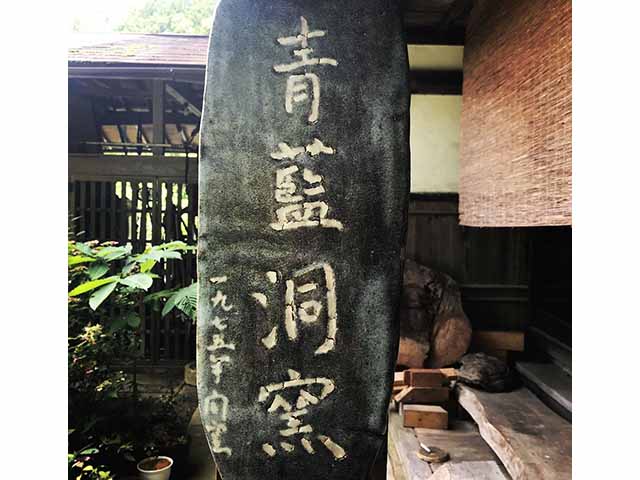 青藍洞窯
一九七五年 内里